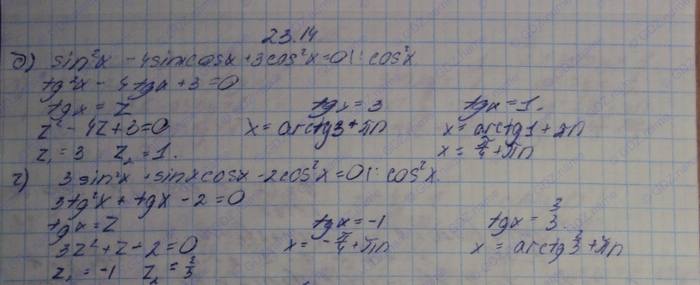 23.14
д) sin²x - 4sinxcosx + 3cos²x = 0 |: cos²x
tg²x - 4tgx + 3 = 0
tgx = z
z² - 4z + 3 = 0
z₁ = 3 z₂ = 1.
tgx = 3
x = arctg3 + πn
tgx = 1.
x = arctg1 + πn
x = π/4 + πn
г) 3sin²x + sinxcosx - 2cos²x = 0 |: cos²x
3tg²x + tgx - 2 = 0
tgx = z
3z² + z - 2 = 0
z₁ = -1 z₂ = 2/3
tgx = -1
x = -π/4 + πn
tgx = 2/3
x = arctg 2/3 + πn